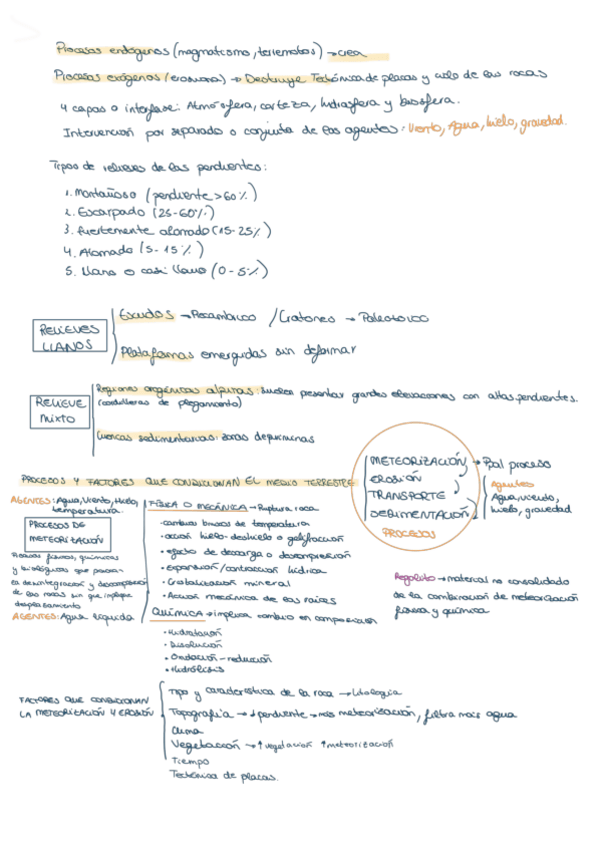 Procesos endógenos (magmatismo, terremotos) → crea
Procesos exógenos (erosivos) → Destruye Tectónica de placas y ciclo de las rocas
4 capas o interfase: Atmósfera, corteza, hidrosfera y biosfera.
Intervención por separado o conjunta de los agentes: Viento, Agua, hielo, gravedad.
Tipos de relieves de las pendientes:
1. Montañoso (pendiente > 60%)
2. Escarpado (25-60%)
3. Fuertemente alomado (15-25%)
4. Alomado (5-15%)
5. Llano o casi llano (0-5%)
RELIEVES LLANOS
Escudos → Precámbrico / Cratones → Paleozoico
Plataformas emergidas sin deformar
RELIEVE MIXTO
Regiones orogénicas alpinas: suelen presentar grandes elevaciones con altas pendientes.
(cordilleras de plegamiento)
Cuencas sedimentarias: zonas deprimidas
PROCESOS Y FACTORES QUE CONDICIONAN EL MEDIO TERRESTRE
METEORIZACIÓN → Ppal proceso
EROSIÓN
TRANSPORTE
SEDIMENTACIÓN
PROCESOS
Agentes
Agua, viento,
hielo, gravedad
AGENTES: Agua, Viento, Hielo,
temperatura
PROCESOS DE
METEORIZACIÓN
físicos, químicos
y biológicos que
la desintegración y descomposición
de las rocas sin que implique
desplazamiento
AGENTES: Agua líquida
FÍSICA O MECÁNICA → Ruptura roca
· cambios bruscos de temperatura
· acción hielo-deshielo o gelifracción
· efecto de descarga o descompresión
· Expansión/contracción hídrica
· Cristalización mineral
· Acción mecánica de las raíces
QUÍMICA → implica cambio en composición
· Hidratación
· Disolución
· Oxidación-reducción
· Hidrólisis
Regolito → material no consolidado
de la combinación de meteorización
física y química
FACTORES QUE CONDICIONAN
LA METEORIZACIÓN Y EROSIÓN
Tipo y característica de la roca → Litología
Topografía → ↓ pendiente → más meteorización, filtra más agua
Clima
Vegetación → ↑ vegetación ↑ meteorización
Tiempo
Tectónica de placas.